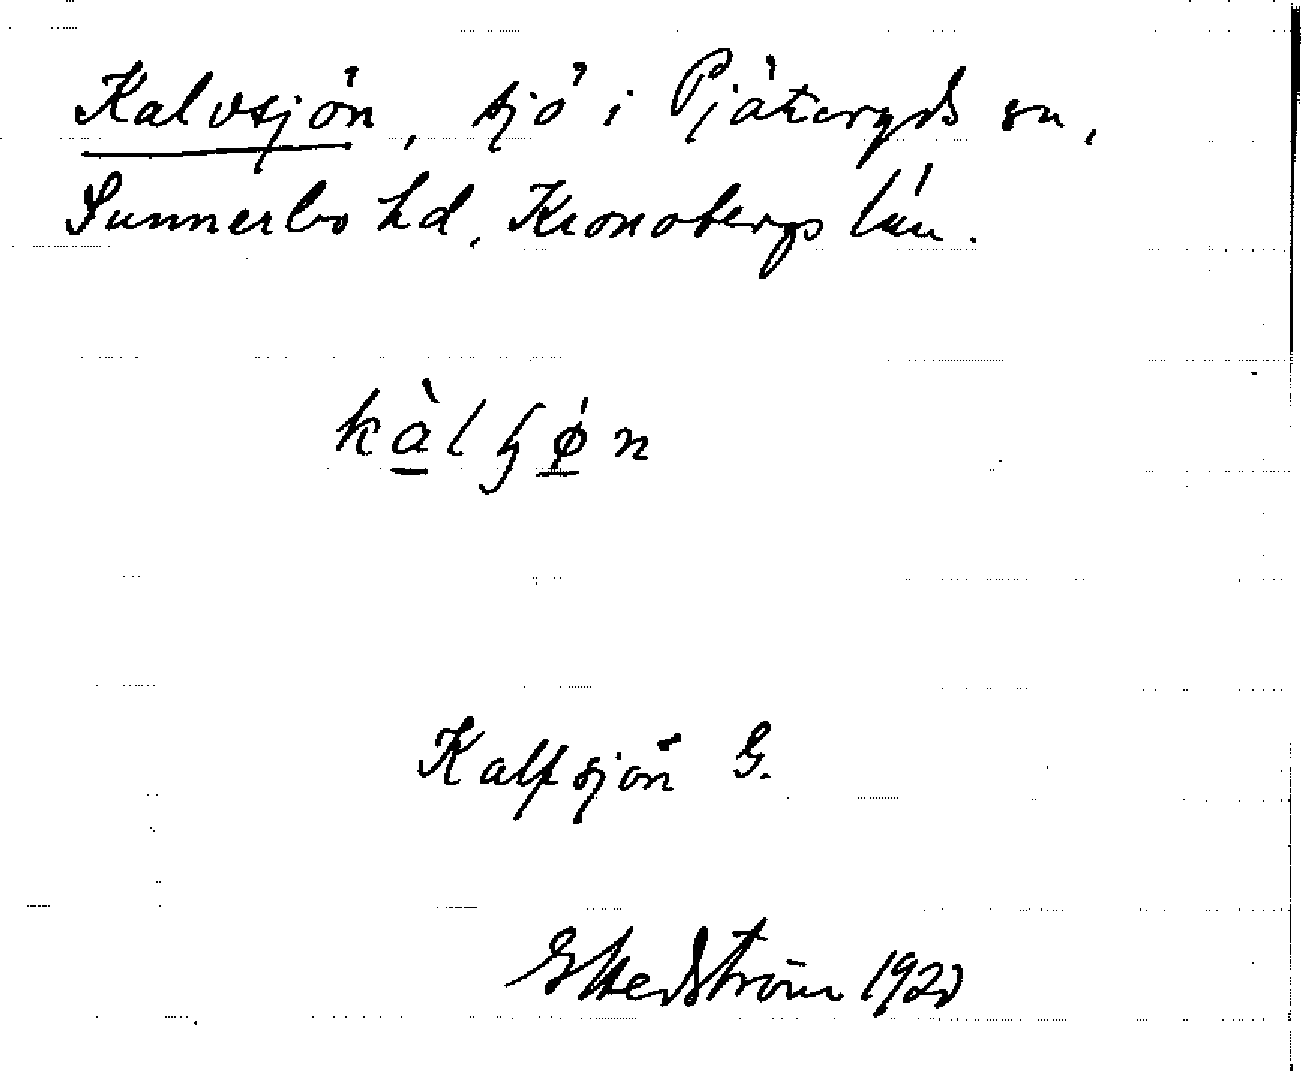 Kalvsjön, sjö i Pjätteryds sn,
Sunnerbo hd, Kronobergs län.
kàlɧǿn
Kalfsjön G.
G Hedström 1920